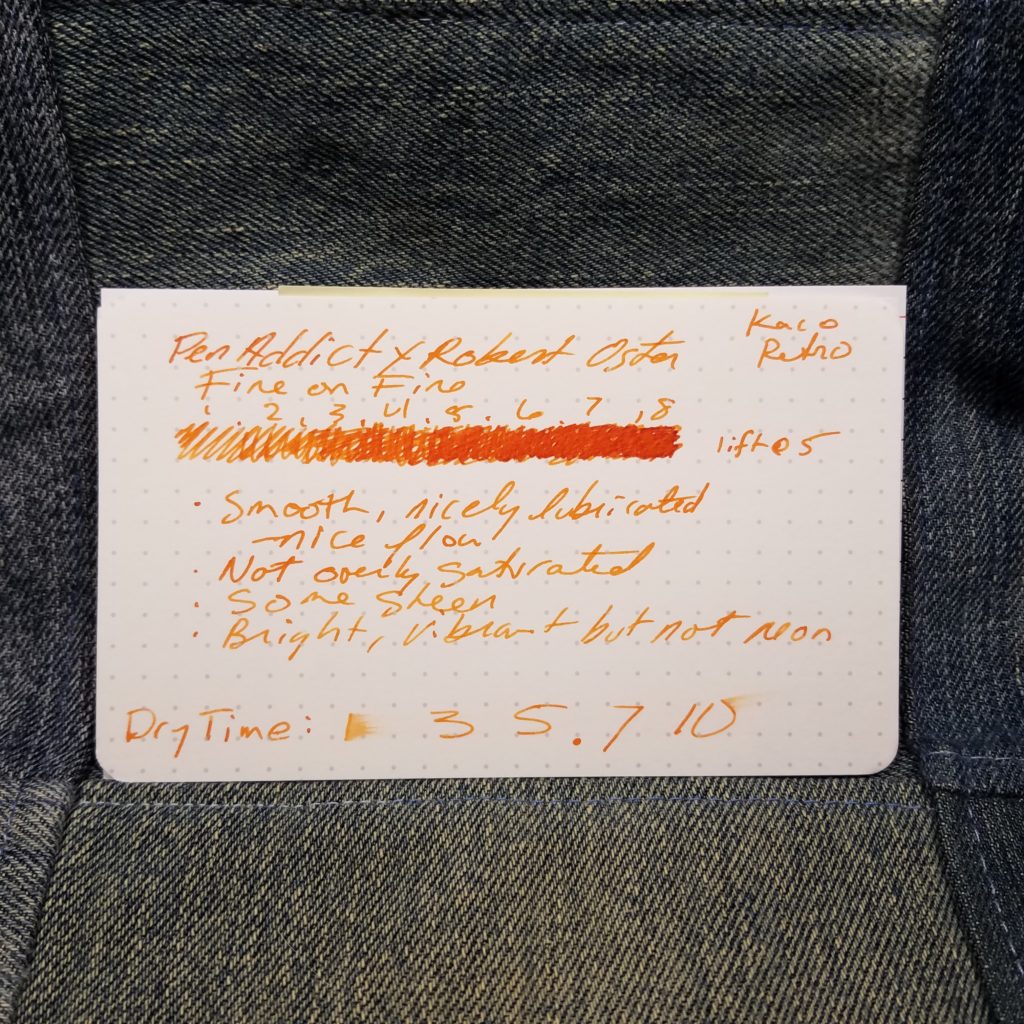 Pen Addict x Robert Oster
Kaco
Retro
Fire on Fire
1 . 2 . 3 . 4 . 5 . 6 . 7 . 8
lift @ 5
· Smooth, nicely lubricated
- nice flow
· Not overly saturated
· Some sheen
· Bright, vibrant but not neon
Dry Time: 1 3 5 . 7 10